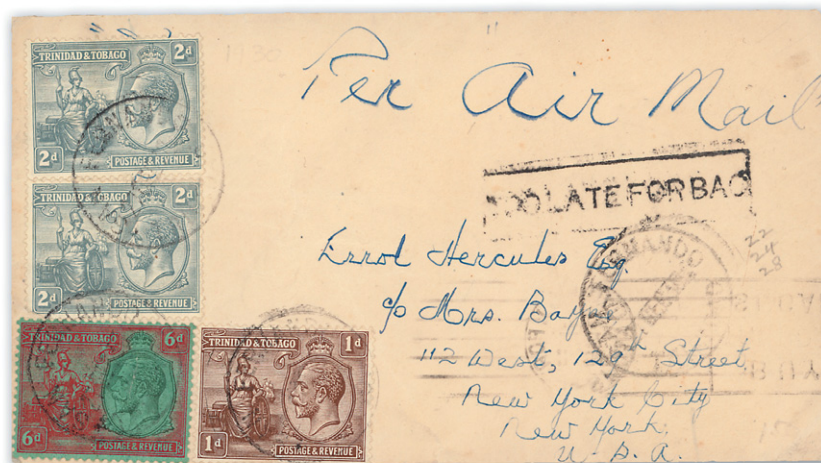 1930
Per Air Mail
TRINIDAD & TOBAGO 2d
2d POSTAGE & REVENUE
TRINIDAD & TOBAGO 2d
2d POSTAGE & REVENUE
TRINIDAD & TOBAGO 6d
6d POSTAGE & REVENUE
TRINIDAD & TOBAGO 1d
1d POSTAGE & REVENUE
LATE FOR BAG
22
24
28
Errol Hercules Esq.
c/o Mrs.
112 West, 129th Street
New York City
New York.
U. S. A.